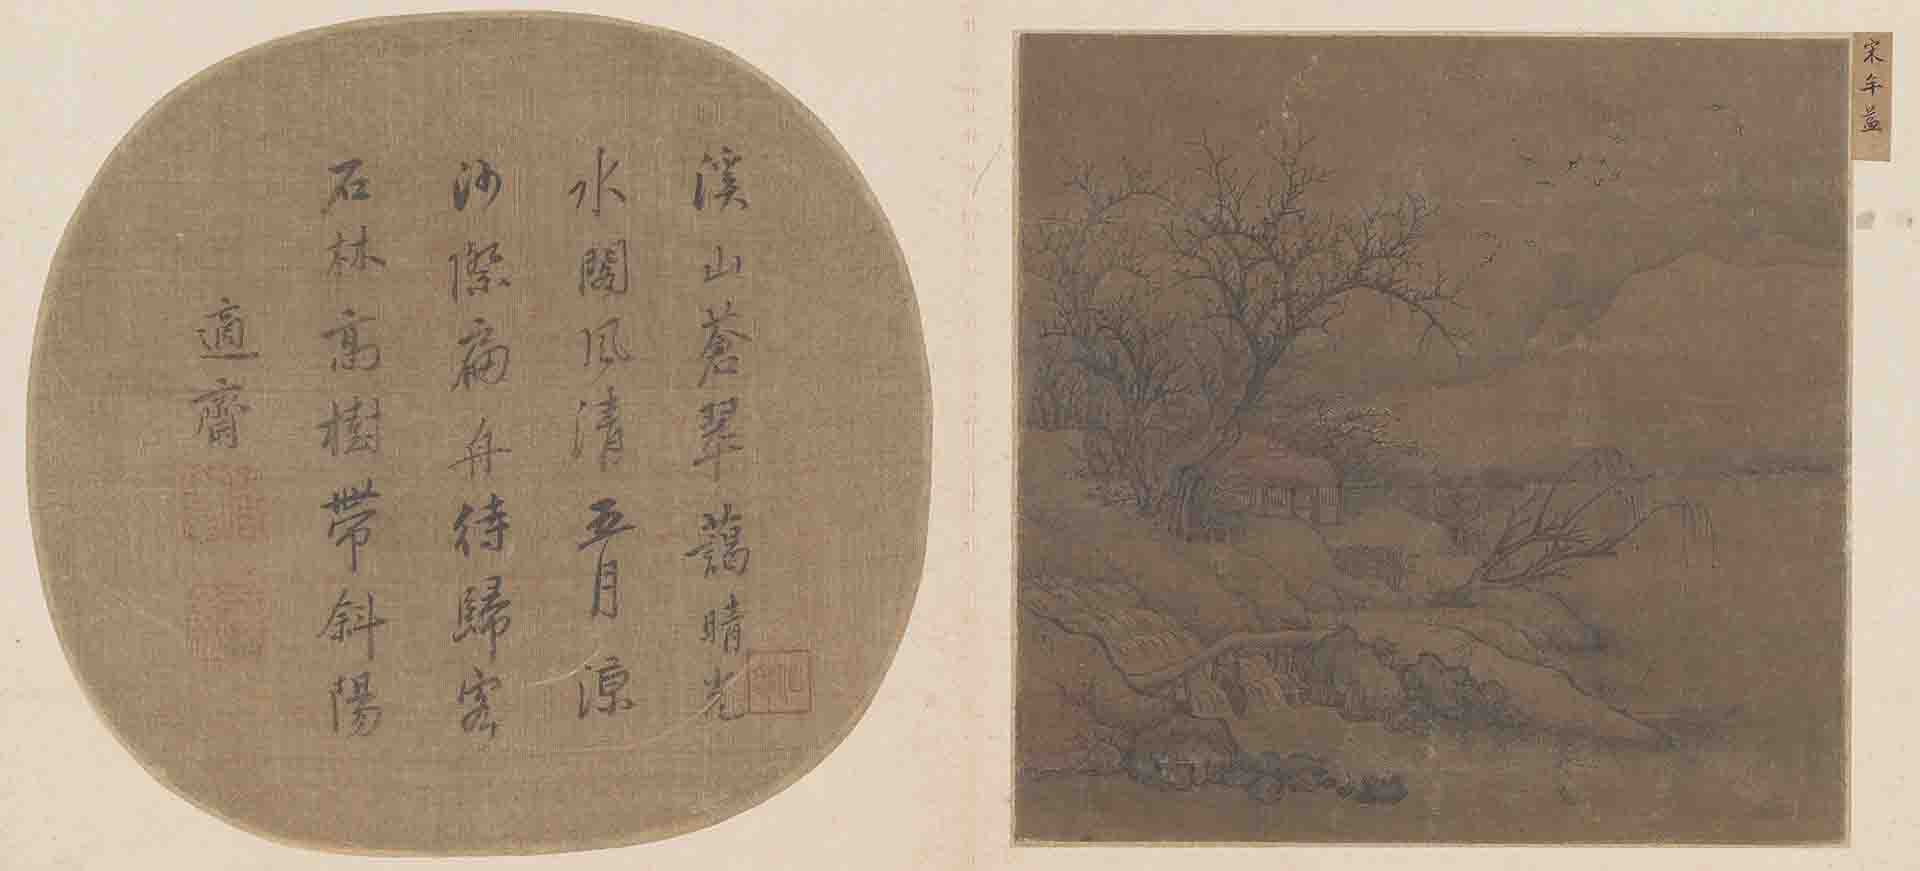 宋年益
溪山蒼翠藹晴光
水閣風清五月涼
沙際扁舟待歸客
石林高樹帶斜陽
適齋